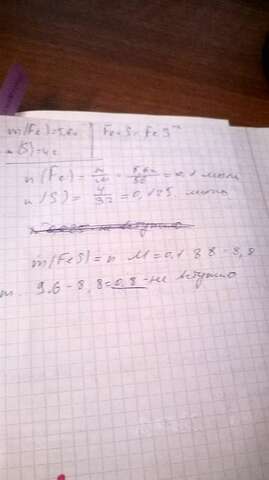 m(Fe)=5,6г Fe+S=FeS
m(S)=4г
n(Fe)=m/M=5,6/56=0,1 моль
n(S)=4/32=0,125 моль
m(FeS)=n M=0,1 88=8,8
m. 9.6-8,8=0,8-не вступило